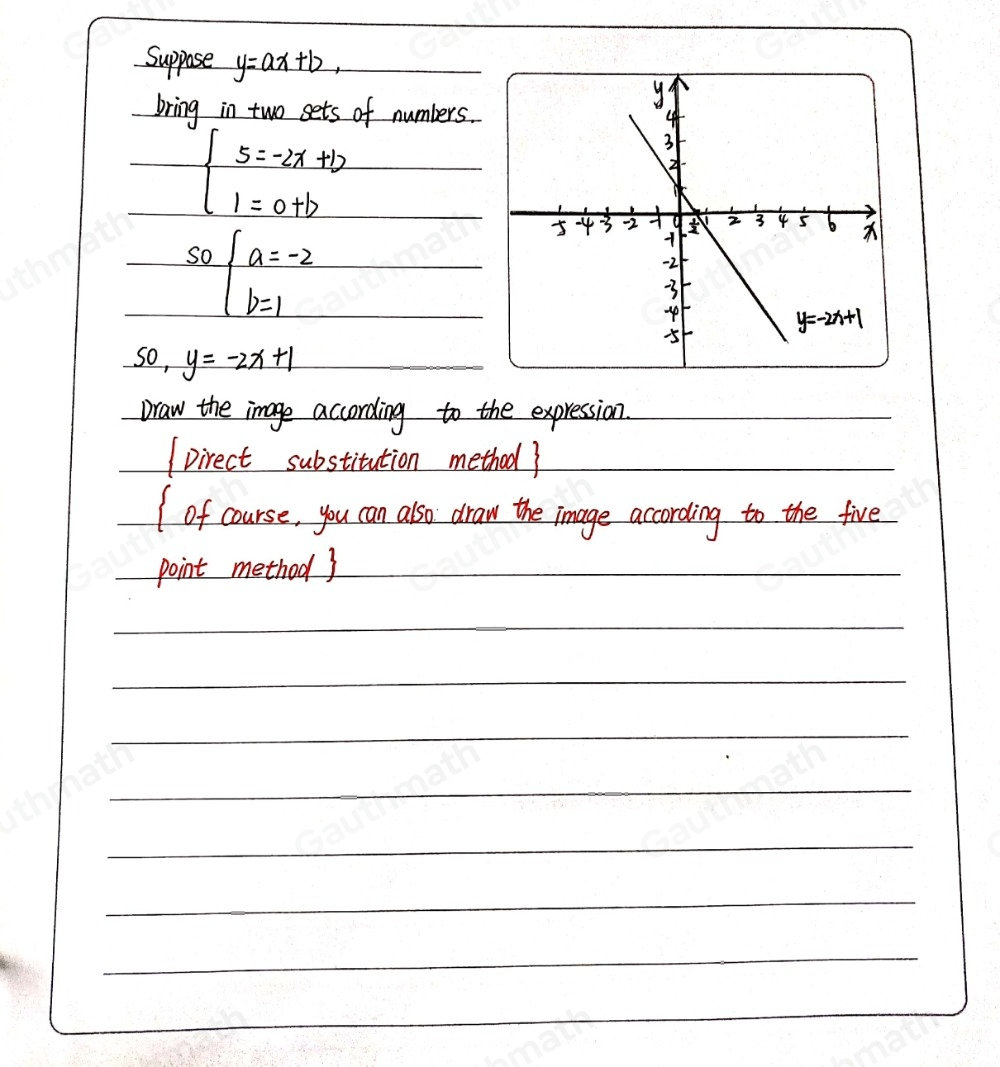 Suppose y=ax+b,
bring in two sets of numbers.
5=-2x+b
1=0+b
so a=-2
b=1
so, y=-2x+1
Draw the image according to the expression.
{Direct substitution method}
{Of course, you can also draw the image according to the five
point method}
y
4
3
2
1
-5 -4 -3 -2 -1 0 1/2 1 2 3 4 5 6 x
-1
-2
-3
-4
-5
y=-2x+1
Gauthmath